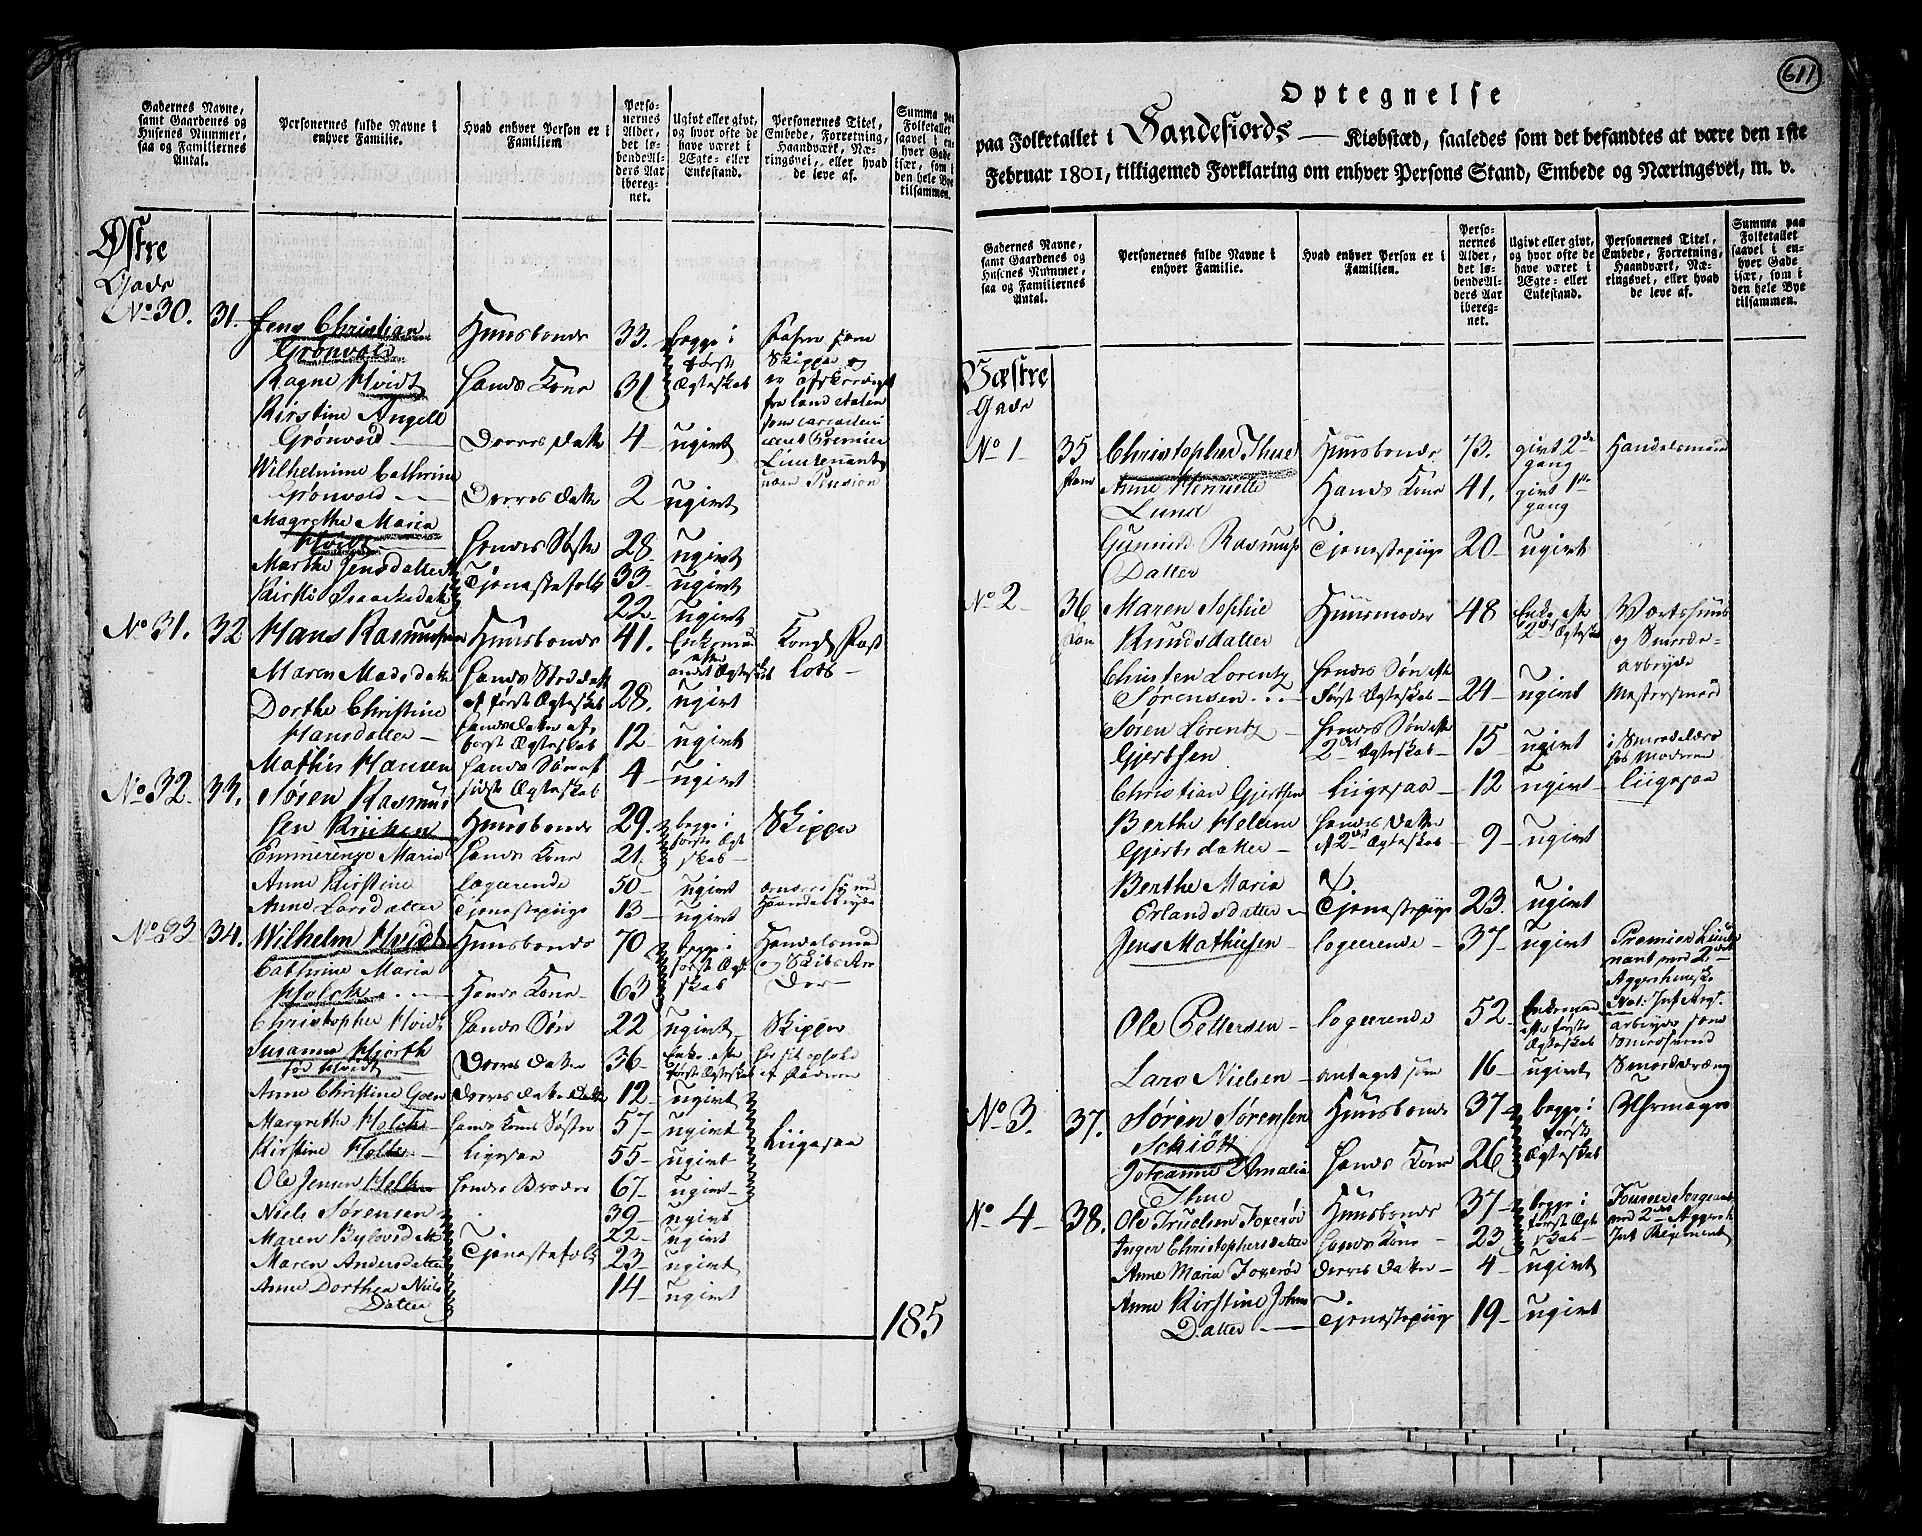 Gadernes Navne,
samt Gaardenes og
Husenes Nummer,
saa og Familiernes
Antal.
Personernes fulde Navne i
enhver Familie.
Hvad enhver Person er i
Familien
Perso-
nernes
Alder,
det lø-
bende Al-
ders Aar
iberegnet.
Ugivt eller givt,
og hvor ofte de
have været i
Ægte- eller
Enkestand.
Personernes Titel,
Embede, Forretning,
Haandværk, Næ-
ringsvei, eller hvad
de leve af.
Summa paa
Folketallet
saavel i en-
hver Gade
især, som i
den hele Bye
tilsammen.
Østre
Gade
No 30. 31. Jens Christian Huusbonde 33. begge i
Grønvold første
Ragne Hvidt Hands Kone 31 Ægteskab
Kirstine Angell
Grønvold Deres datter 4 ugivt
Wilhelmine Cathrine
Grønvold Deres datter 2 ugivt
Magrethe Maria
Hvidt Hendes Søster 28 ugivt
Marthe Jensdatter Tjenestefolk 33 ugivt
Kirsti Isaacsdatter 22 ugivt
No 31. 32 Hans Rasmussen Huusbonde 41. Enkemand Post
efter
andet Ægteskab
Maren Madsdatter Hands
af først Ægteskab 28. ugivt
Dorthe Christine Hands datter af
Hansdatter først Ægteskab 12 ugivt
Mathis Hansen Hands Søn af 4 ugivt
sidste Ægteskab
No 32. 33. Søren Rasmus
sen Huusbonde 29. begge i Skipper
første Ægt
Emmerenze Maria Hands Kone 21. skab
Anne Kirstine logerende 50 ugivt
Anne Larsdatter Tjenestepiige 13 ugivt
No 33 34. Wilhelm Hvidt Huusbonde 70 begge i Handelsmand
første Ægt og Skibs Re
Cathrine Maria
Holck Hands Kone 63 skab der
Christopher Hvidt Hands Søn 22 ugivt Skipper
Susanna Hjorth Deres datter 36 Enke efter
fød Hvidt første Ægteskab
Anne Christine Deres datter Datter 12 ugivt
Margrethe Holck Hands Kones Søster 57 ugivt
Kirstine Holck ligesaa 55 ugivt ligesaa
Ole Jensen Holck Hendes Broder 67 ugivt
Niels Sørensen 39 ugivt
Maren 22 ugivt
Maren Andersdatter Tjenestefolk 23 ugivt
Anne Dorthea Niels 14 ugivt
Datter
185
611
Optegnelse
paa Folketallet i Sandefiords Kiøbstæd, saaledes som det befandtes at være den 1ste
Februar 1801, tilligemed Forklaring om enhver Persons Stand, Embede og Næringsvei, m. v.
Gadernes Navne,
samt Gaardenes og
Husenes Nummer,
saa og Familiernes
Antal.
Personernes fulde Navne i
enhver Familie.
Hvad enhver Person er i
Familien.
Perso-
nernes
Alder,
det lø-
bende Al-
ders Aar
iberegnet.
Ugivt eller givt,
og hvor ofte de
have været i
Ægte- eller
Enkestand.
Personernes Titel,
Embede, Forretning,
Haandværk, Næ-
ringsvei, eller hvad
de leve af.
Summa paa
Folketallet
saavel i en-
hver Gade
især, som i
den hele Bye
tilsammen.
Væstre
Gade
No 1 35 Christopher Thue Huusbonde 73. givt 2de Handelsmand
gang
Anne Henriette Hands Kone 41. givt 1ste
Lund gang
Rasmus Tjenestepiige 20 ugivt
Datter
No 2 36 Maren Sophie Huusmoder 48 Enke efte Værtshuus
Knudsdatter 2det Ægteskab og Smede-
arbeyde
Christen Lorentz Hendes Søn efte
Sørensen første Ægteskab 24 ugivt Mestersmed
Søren Lorentz Hendes Søn efte
Gjertsen 2det Ægteskab 15 ugivt i Smedelære
hos Moderen
Christian Gjertsen liigesaa 12 ugivt liigesaa
Berthe Helene Hendes datter
Gjertsdatter af 2det Ægteskab 9 ugivt
Berthe Maria
Erlandsdatter Tjenestepiige 23 ugivt
Jens Mathiesen logerende 37 ugivt Premier Lieute
nant ved 2det
Aggershusiske
Ole Pettersen logerende 52 Enkemand Nat: Inf: Reg:
efter første arbeyder som
Ægteskab Smedsvend
Lars Nielsen antaget som 16 ugivt Smededræng
No 3. 37. Søren Sørensen Huusbonde 37 begge i Uhrmager
Schiøtt første
Johanne Amalia Hands Kone 26 Ægteskab
Thue
No 4 38. Ole Truelsen Foxerød Huusbonde 37 begge i Fourer Sergeant
første Ægt ved 2det Aggersh
Inger Christophersdatter Hands Kone 23 skab Inf Regiment
Anne Maria Foxerød Deres datter 4 ugivt
Anne Kirstine Johns
Datter Tjenestepiige 19 ugivt